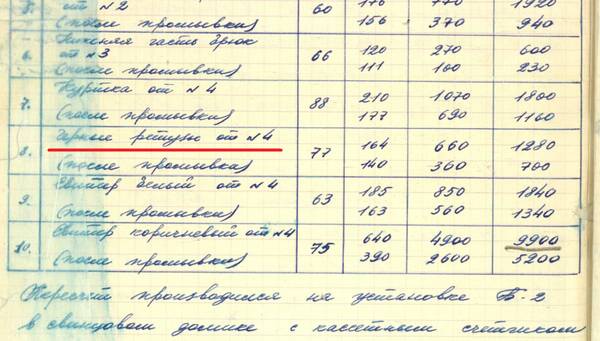 5. от №2 60 176 770 1920
(после промывки) 156 370 940
6. Нижняя часть брюк от №3 66 120 270 600
(после промывки) 111 160 230
7. Куртка от №4 88 210 1070 1800
(после промывки) 177 690 1160
8. Черные рейтузы от №4 77 164 660 1280
(после промывки) 140 360 700
9. Свитер белый от №4 63 185 850 1840
(после промывки) 163 560 1340
10. Свитер коричневый от №4 75 640 4900 9900
(после промывки) 390 2600 5200
Пересчет производился на установке Б-2
в свинцовом домике с кассетным счетчиком